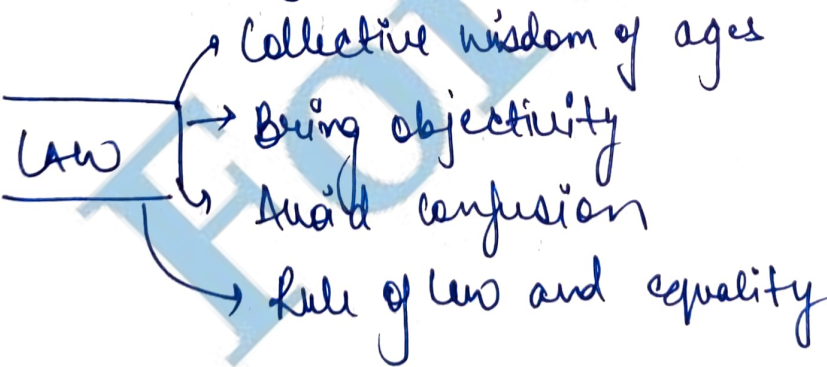 Collective wisdom of ages
LAW
Bring objectivity
Avoid confusion
Rule of law and equality